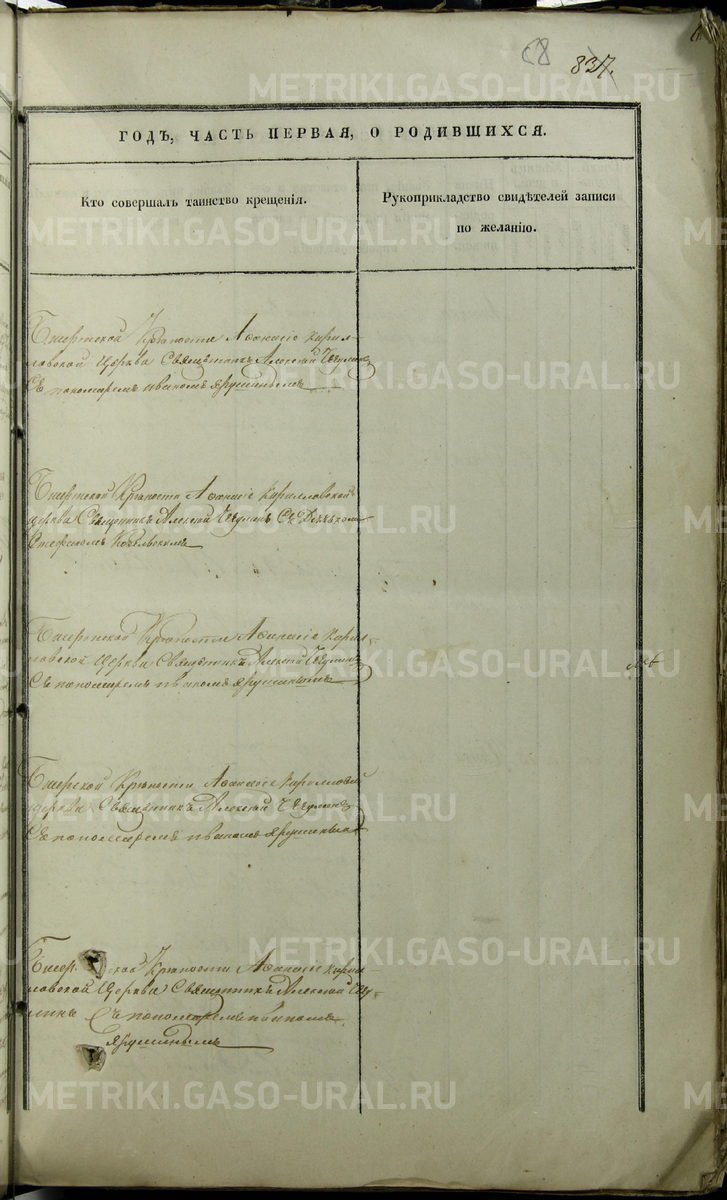 58
837.
ГОДЪ, ЧАСТЬ ПЕРВАЯ, О РОДИВШИХСЯ.
Кто совершалъ таинство крещенія.
Рукоприкладство свидѣтелей записи
по желанію.
Бисертской Крѣпости Афанасіе Кирил-
ловской Церкви Священникъ Алексѣй
Съ пономаремъ Иваномъ Ярушинымъ
Бисертской Крѣпости Афанасіе Кирилловской
Церкви Священникъ Алексѣй Съ Дьячкомъ
Стефаномъ
Бисертской Крѣпости Афанасіе Кирил-
ловской Церкви Священникъ Алексѣй
Съ пономаремъ Иваномъ Ярушинымъ
Бисерской Крѣпости Афанасіе Кирилловской
Церкви Священникъ Алексѣй
Съ пономаремъ Иваномъ Ярушинымъ
ской Крѣпости Афанасіе Кирил-
ловской Церкви Священникъ Алексѣй
Съ пономаремъ Иваномъ
Ярушинымъ
METRIKI.GASO-URAL.RU